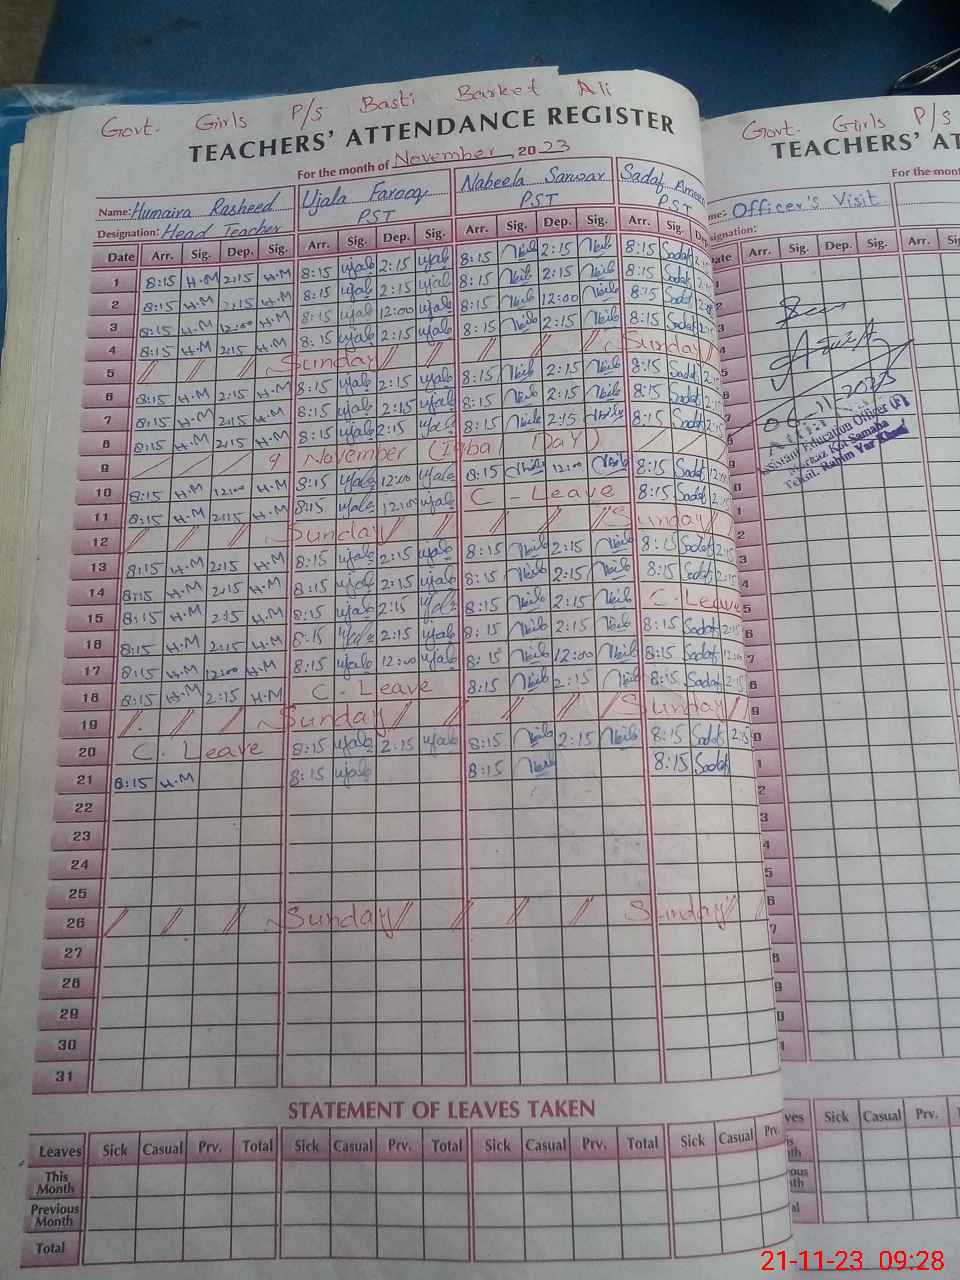 Govt. Girls P/S Basti Barket Ali
TEACHERS' ATTENDANCE REGISTER
For the month of November 2023
Name: Humaira Rasheed Ujala Farooq Nabeela Sarwar Sadaf
Designation: Head Teacher PST PST PST
Date Arr. Sig. Dep. Sig. Arr. Sig. Dep. Sig. Arr. Sig. Dep. Sig. Arr. Sig.
1 8:15 H.M 2:15 H.M 8:15 ujala 2:15 ujala 8:15 2:15 8:15 Sadaf 2:15
2 8:15 H.M 2:15 H.M 8:15 ujala 2:15 ujala 8:15 2:15 8:15 Sadaf
3 8:15 H.M 12:00 H.M 8:15 ujala 12:00 ujala 8:15 12:00 8:15 Sadaf
4 8:15 H.M 2:15 H.M 8:15 ujala 2:15 ujala 8:15 2:15 8:15 Sadaf
5 Sunday Sunday
6 8:15 H.M 2:15 H.M 8:15 ujala 2:15 ujala 8:15 2:15 8:15 Sadaf 2:15
7 8:15 H.M 2:15 H.M 8:15 ujala 2:15 ujala 8:15 2:15 8:15 Sadaf 2:15
8 8:15 H.M 2:15 H.M 8:15 ujala 2:15 ujala 8:15 2:15 8:15 Sadaf 2:15
9 9 November (Iqbal Day)
10 8:15 H.M 12:00 H.M 8:15 ujala 12:00 ujala 8:15 12:00 8:15 Sadaf 12:00
11 8:15 H.M 2:15 H.M 8:15 ujala 12:00 ujala C-Leave 8:15 Sadaf 2:15
12 Sunday Sunday
13 8:15 H.M 2:15 H.M 8:15 ujala 2:15 ujala 8:15 2:15 8:15 Sadaf 2:15
14 8:15 H.M 2:15 H.M 8:15 ujala 2:15 ujala 8:15 2:15 8:15 Sadaf 2:15
15 8:15 H.M 2:15 H.M 8:15 ujala 2:15 ujala 8:15 2:15 C-Leave
16 8:15 H.M 2:15 H.M 8:15 ujala 2:15 ujala 8:15 2:15 8:15 Sadaf 2:15
17 8:15 H.M 12:00 H.M 8:15 ujala 12:00 ujala 8:15 12:00 8:15 Sadaf 12:00
18 8:15 H.M 2:15 H.M C-Leave 8:15 2:15 8:15 Sadaf 2:15
19 Sunday Sunday
20 C.Leave 8:15 ujala 2:15 ujala 8:15 2:15 8:15 Sadaf 2:15
21 8:15 H.M 8:15 ujala 8:15 8:15 Sadaf
22
23
24
25
26 Sunday Sunday
27
28
29
30
31
STATEMENT OF LEAVES TAKEN
Leaves Sick Casual Prv. Total Sick Casual Prv. Total Sick Casual Prv. Total Sick Casual Prv.
This Month
Previous Month
Total
Govt. Girls P/S
TEACHERS' AT
For the mont
me: Officer's Visit
signation:
Date Arr. Sig. Dep. Sig. Arr.
06-11-2023
Assistant Education Officer (F)
Markaz Kot Samaba
Tehsil Rahim Yar Khan
ves Sick Casual Prv. Total Sick
21-11-23 09:28